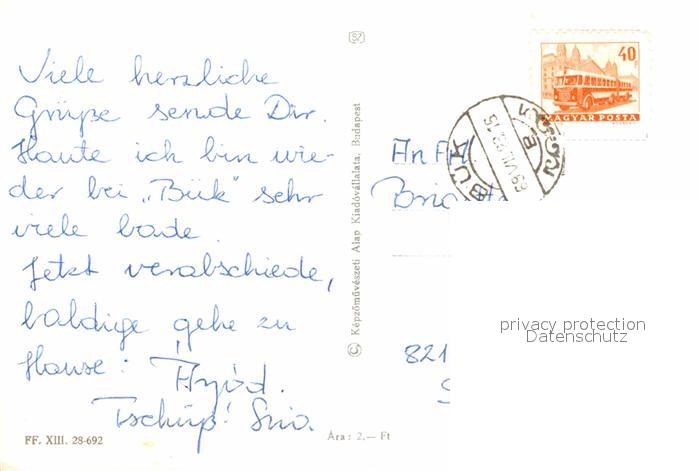 Viele herzliche
Grüße sende Dir.
Haute ich bin wie-
der bei „Bük" sehr
viele bade
Jetzt verabschiede,
baldige gehe zu
Hause:
Tschüß!
FF. XIII. 28-692
Ára: 2.— Ft
© Képzőművészeti Alap Kiadóvállalata, Budapest
40
MAGYAR POSTA
BÜK
An
821
privacy protection
Datenschutz